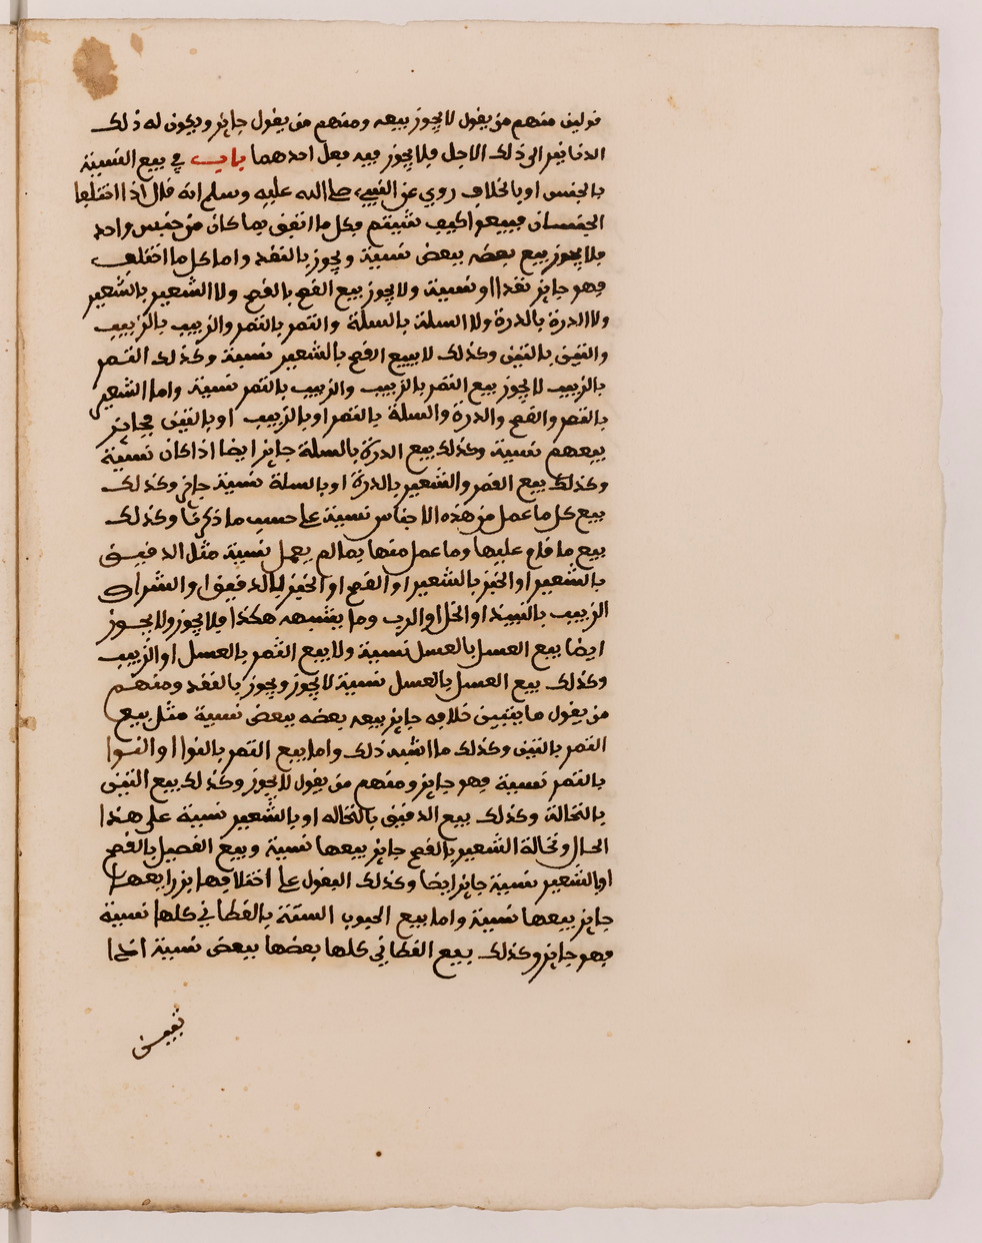 قولين منهم من يقول لا يجوز بيعه ومنهم من يقول جايز ويكون له ذلك
الدنانير الى ذلك الاجل فلا يجوز فيه فعل احدهما باب في بيع النسيئة
بالجنس او بالخلاف روي عن النبيء صلى الله عليه وسلم انه قال اذا اختلفا
الجنسان فبيعوا كيف شئيتم وكل ما اتفق مما كان من جنس واحد
فلا يجوز بيع بعضه ببعض نسيئة ويجوز بالنقد واما كل ما اختلف
فهو جايز نقدا او نسيئة ولا يجوز بيع القمح بالقمح ولا الشعير بالشعير
ولا الدرة بالدرة ولا السلة بالسلة والتمر بالتمر والزبيب بالزبيب
والتين بالتين وكذلك لا يبيع القمح بالشعير نسيئة وكذلك التمر
بالزبيب لا يجوز بيع التمر بالزبيب والزبيب بالتمر نسيئة واما الشعير
بالتمر والقمح والدرة والسلة بالتمر او بالزبيب او بالتين فجايز
بيعهم نسيئة وكذلك بيع الدرة بالسلة جايز ايضا اذا كان نسيئة
وكذلك بيع التمر والشعير بالدرة او بالسلة نسيئة جايز وكذلك
بيع كل ما عمل من هذه الاجناس نسيئة على حسب ما ذكرنا وكذلك
بيع ما قام عليها وما عمل منها بما لم يعمل نسيئة مثل الدقيق
بالشعير او الخبز بالشعير او القمح او الخبز بالدقيق والشراب
الزبيب بالنبيذ او الخل او الرب وما يشبهه هكذا فلا يجوز ولا يجوز
ايضا بيع العسل بالعسل نسيئة ولا بيع التمر بالعسل او الزبيب
وكذلك بيع العسل بالعسل نسيئة لا يجوز ويجوز بالنقد ومنهم
من يقول ما يتبين خلافه جايز بيعه بعضه ببعض نسيئة مثل بيع
التمر بالتين وكذلك ما اشبه ذلك واما بيع التمر بالنوا او النوا
بالتمر نسيئة فهو جايز ومنهم من يقول لا يجوز وكذلك بيع التين
بالنخالة وكذلك بيع الدقيق بالنخالة او بالشعير نسيئة على هذا
الحال ونخالة الشعير بالقمح جايز بيعها نسيئة وبيع القصيل بالقمح
او بالشعير نسيئة جايز ايضا وكذلك البقول على اختلافها بزرايعها
جايز بيعها نسيئة واما بيع الحبوب الستة بالقطاني كلها نسيئة
فهو جايز وكذلك بيع القطاني كلها بعضها ببعض نسيئة اذا